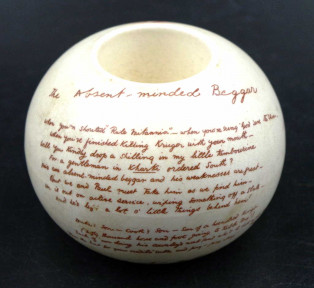 The Absent-minded Beggar
When you've shouted "Rule Britannia" - when you've sung "God save the
When you've finished Killing Kruger with your mouth -
Will you Kindly drop a shilling in my little tambourine
For a gentleman in Kharki ordered South?
He's an absent-minded beggar and his weaknesses are great -
But we and Paul must take him as we find him -
He is out on active service, wiping something off a slate -
And he's left a lot o' little things behind him!
Duke's son - Cook's son - son of a hundred Kings
Fifty thousand horse and foot going to Table Bay